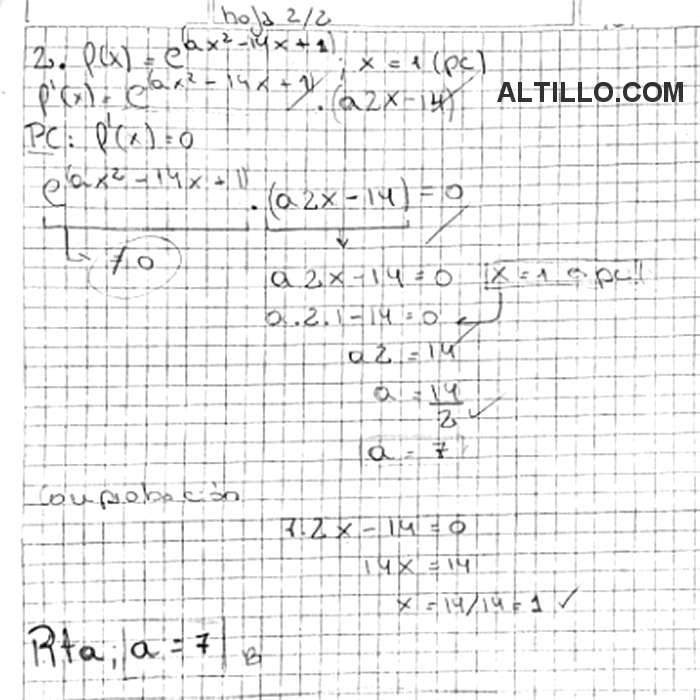 hoja 2/2
2. f(x) = e^(ax² - 14x + 1) ; x = 1 (pc)
f'(x) = e^(ax² - 14x + 1) . (a2x - 14)
ALTILLO.COM
PC: f'(x) = 0
e^(ax² - 14x + 1) . (a2x - 14) = 0
≠ 0
a2x - 14 = 0 x = 1 pc
a.2.1 - 14 = 0
a2 = 14
a = 14/2 ✓
a = 7
Comprobación
7.2x - 14 = 0
14x = 14
x = 14/14 = 1 ✓
Rta: a = 7 B